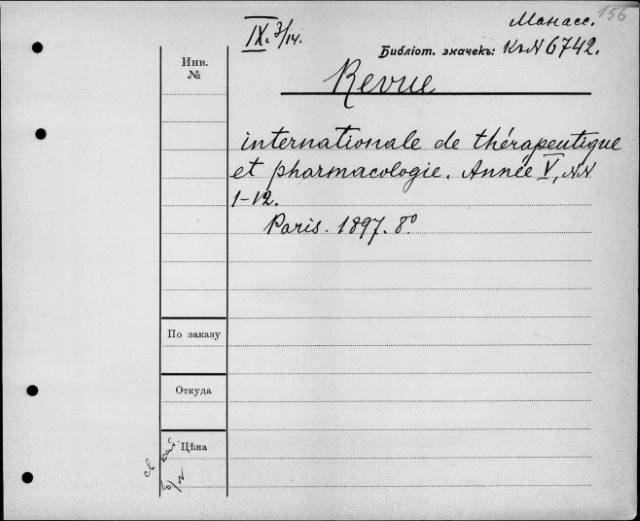 156
Манасс.
IX. 3/14.
Библіот. значекъ: КъN 6742.
Инв.
№
Revue
internationale de thérapeutique
et pharmacologie. Année V, NN
1-12.
Paris. 1897. 8°
По заказу
Откуда
Цѣна